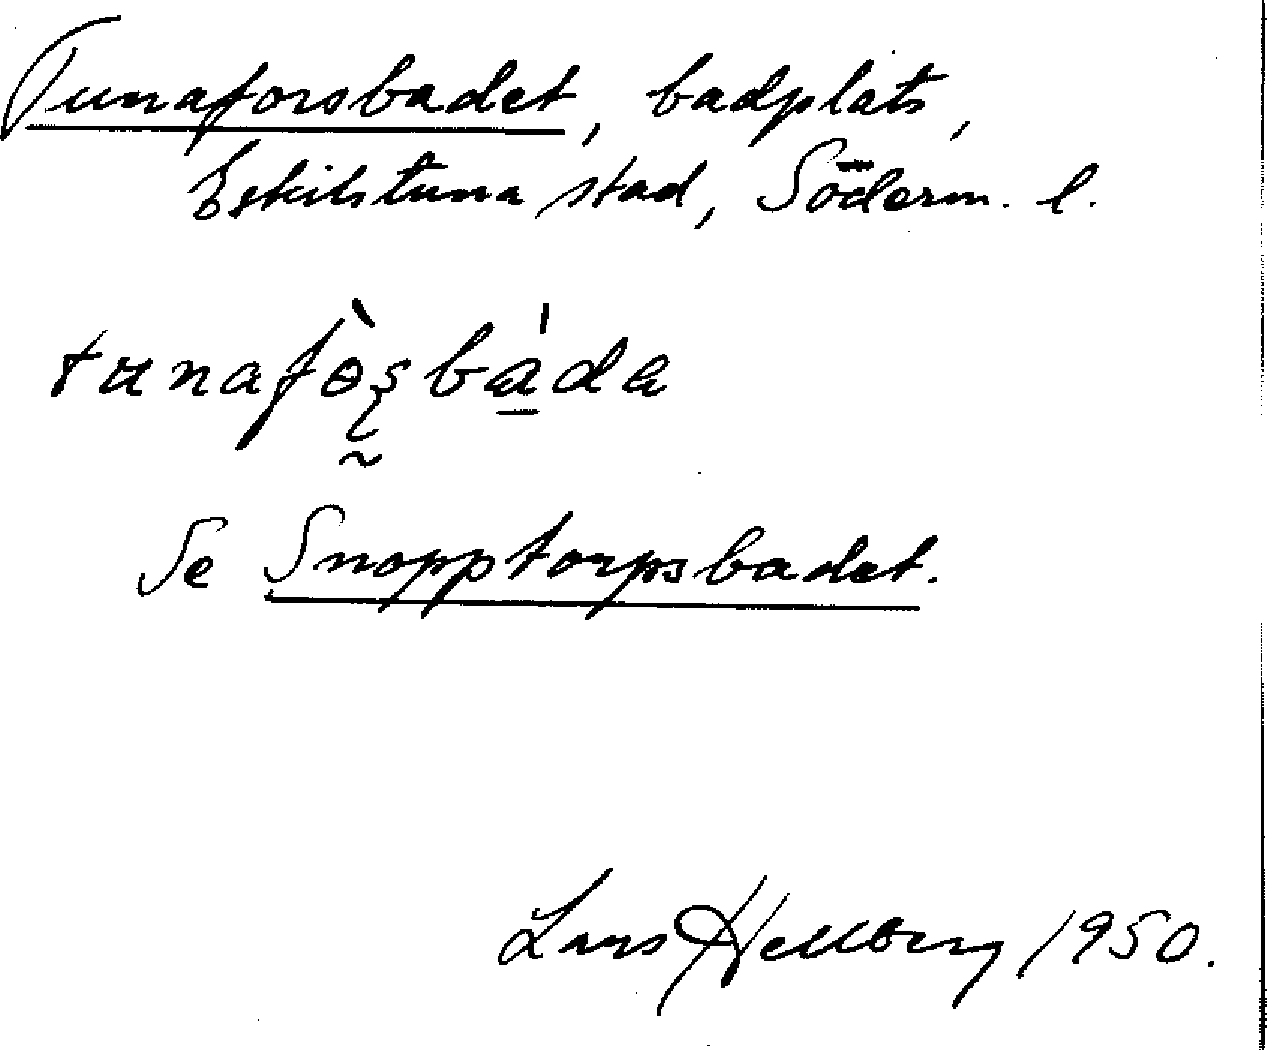 Tunaforsbadet, badplats,
Eskilstuna stad, Söderm. l.
tunafòʂbáda
Se Snopptorpsbadet.
Lars Hellberg 1950.